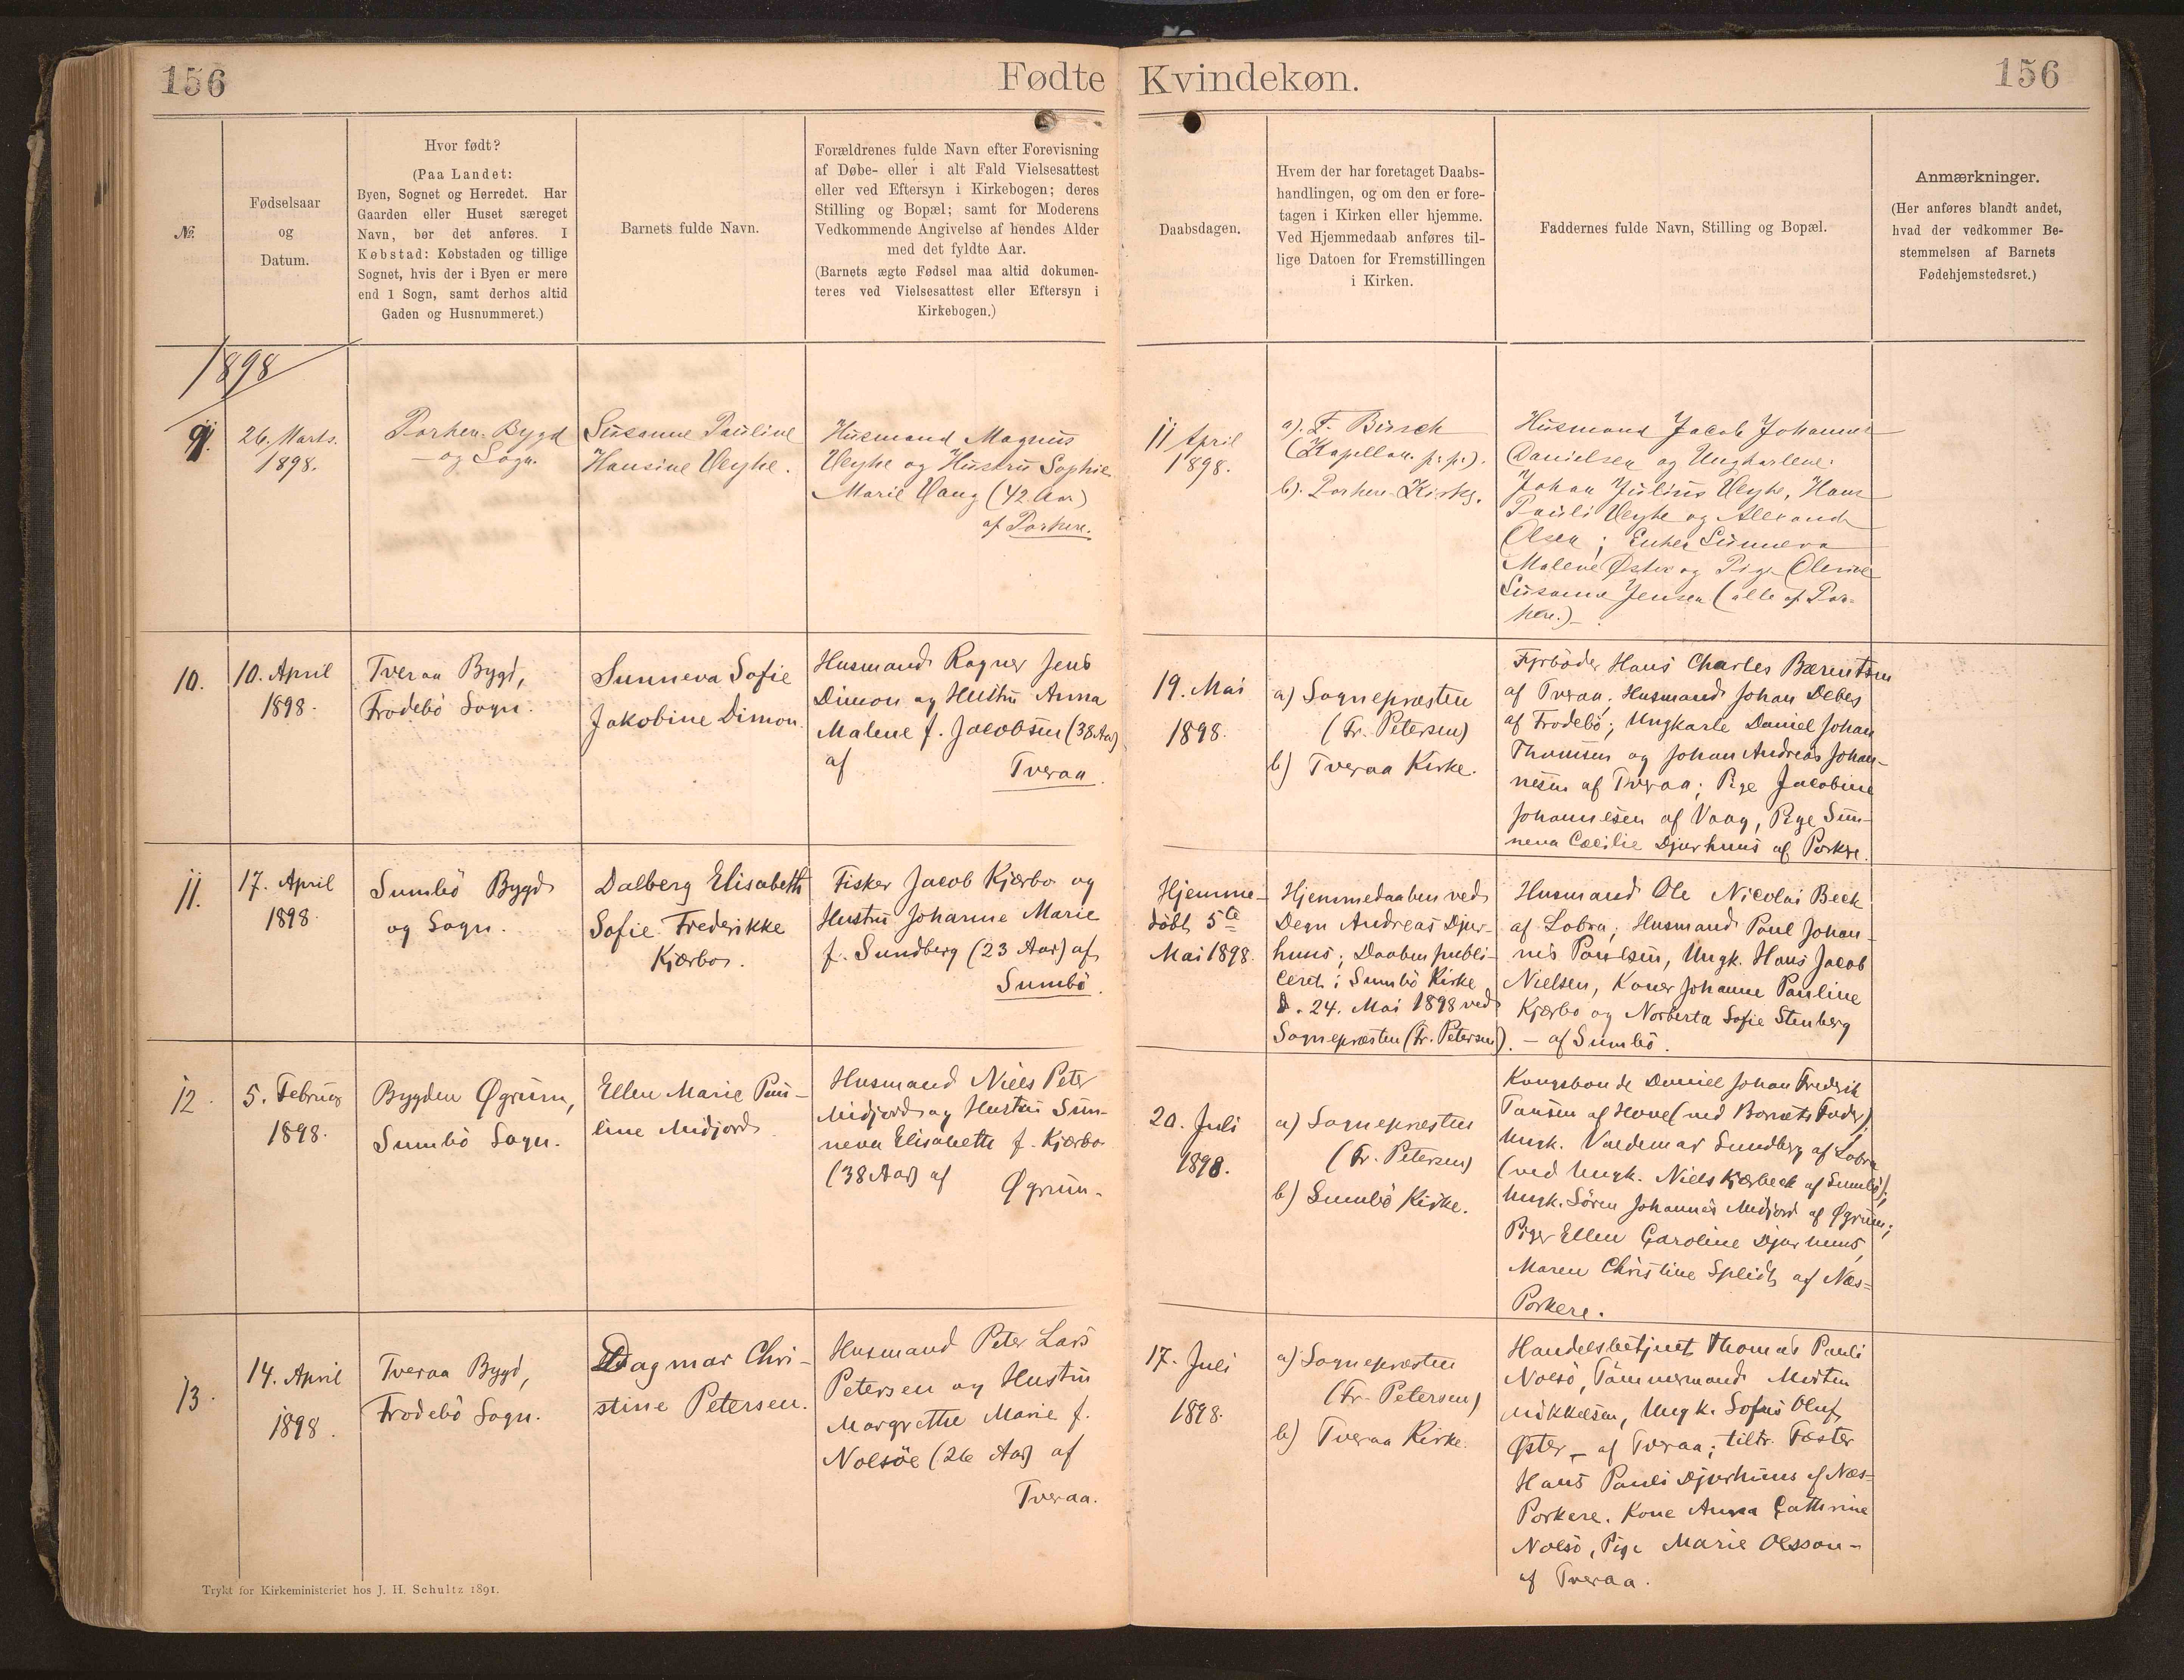 156
Fødte
Kvindekøn.
156
№.
Fødselsaar
og
Datum.
Hvor født?
(Paa Landet:
Byen, Sognet og Herredet. Har
Gaarden eller Huset særeget
Navn, bør det anføres. I
Købstad: Købstaden og tillige
Sognet, hvis der i Byen er mere
end 1 Sogn, samt derhos altid
Gaden og Husnummeret.)
Barnets fulde Navn.
Forældrenes fulde Navn efter Forevisning
af Døbe- eller i alt Fald Vielsesattest
eller ved Eftersyn i Kirkebogen; deres
Stilling og Bopæl; samt for Moderens
Vedkommende Angivelse af hendes Alder
med det fyldte Aar.
(Barnets ægte Fødsel maa altid dokumen-
teres ved Vielsesattest eller Eftersyn i
Kirkebogen.)
Daabsdagen.
Hvem der har foretaget Daabs-
handlingen, og om den er fore-
tagen i Kirken eller hjemme.
Ved Hjemmedaab anføres til-
lige Datoen for Fremstillingen
i Kirken.
Faddernes fulde Navn, Stilling og Bopæl.
Anmærkninger.
(Her anføres blandt andet,
hvad der vedkommer Be-
stemmelsen af Barnets
Fødehjemstedsret.)
1898
9.
26. Marts.
1898.
Porkere Bygd
og Sogn.
Susanne Pauline
Hansine Veyhe.
Husmand Magnus
Veyhe og Hustru Sophie
Marie Vaag (42 Aar)
af Porkere.
11 April
1898.
a). F. Busch
(Kapellan. p.p.).
b). Porkere Kirke.
Husmand Jacob Johannes
Danielsen og Ungkarlene:
Johan Julius Veyhe, Hans
Pauli Veyhe og Alexander
Olsen; Enken Sunneva
Malene Øster og Pige Oline
Susanne Jensen (alle af Por-
kere.)
10.
10. April
1898.
Tveraa Bygd,
Frodebö Sogn.
Sunneva Sofie
Jakobine Dimon.
Husmand Ragner Jens
Dimon og Hustru Anna
Malene f. Jacobsen (38 Aar)
af
Tveraa.
19. Mai
1898.
a) Sognepræsten
(Fr. Petersen)
b) Tveraa Kirke.
Fyrböder Hans Charles Bærentsen
af Tveraa, Husmand Johan Debes
af Frodebö; Ungkarle Daniel Johan
Thomsen og Johan Andreas Johan-
nesen af Tveraa; Pige Jacobine
Johannesen af Vaag, Pige Sun-
neva Cæcilie Djurhuus af Porkere.
11.
17. April
1898.
Sumbö Bygd
og Sogn.
Dalberg Elisabeth
Sofie Frederikke
Kjærbo.
Fisker Jacob Kjærbo og
Hustru Johanne Marie
f. Sundberg (23 Aar) af
Sumbö.
Hjemme-
döbt 5te
Mai 1898.
Hjemmedaaben ved
Degn Andreas Djur-
huus; Daaben publi-
ceret i Sumbö Kirke
d. 24. Mai 1898 ved
Sognepræsten (Fr. Petersen).
Husmand Ole Nicolai Beck
af Lobra, Husmand Poul Johan-
nes Poulsen, Ungk. Hans Jacob
Nielsen, Koner Johanne Pauline
Kjærbo og Norberta Sofie Stenberg
- af Sumbö.
12.
5. Februar
1898.
Bygden Øgrum,
Sumbö Sogn.
Ellen Marie Pau-
line Midjord
Husmand Niels Peter
Midjord og Hustru Sun-
neva Elisabeth f. Kjærbo
(38 Aar) af
Øgrum.
20. Juli
1898.
a) Sognepræsten
(Fr. Petersen)
b) Sumbö Kirke.
Kongsbonde Daniel Johan Fredrik
Tausen af Hove (ved Barnets Fader),
Ungk. Valdemar Sundberg af Lobra
(ved Ungk. Niels Kjærbeck af Sumbö);
Ungk. Sören Johannes Midjord af Øgrum;
Piger Ellen Caroline Djurhuus,
Maren Christine Splidt af Næs-
Porkere.
13.
14. April
1898.
Tveraa Bygd,
Frodebö Sogn.
Dagmar Chri-
stine Petersen.
Husmand Peter Lars
Petersen og Hustru
Margrethe Marie f.
Nolsöe (26 Aar) af
Tveraa.
17. Juli
1898.
a) Sognepræsten
(Fr. Petersen)
b) Tveraa Kirke.
Handelsbetjent Thomas Pauli
Nolsö, Tömmermand Morten
Mikkelsen, Ungk. Sofus Oluf
Øster - af Tveraa; tiltr. Fæster
Hans Pauli Djurhuus af Næs-
Porkere. Kone Anna Cathrine
Nolsö, Pige Marie Olsson -
af Tveraa.
Trykt for Kirkeministeriet hos J. H. Schultz 1891.